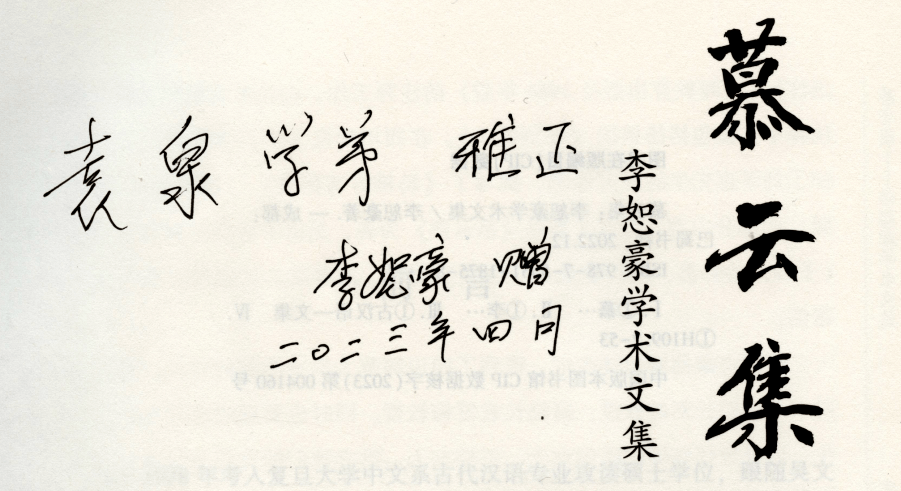 慕云集
李恕豪学术文集
袁泉学弟 雅正
李恕豪 赠
二〇二三年四月